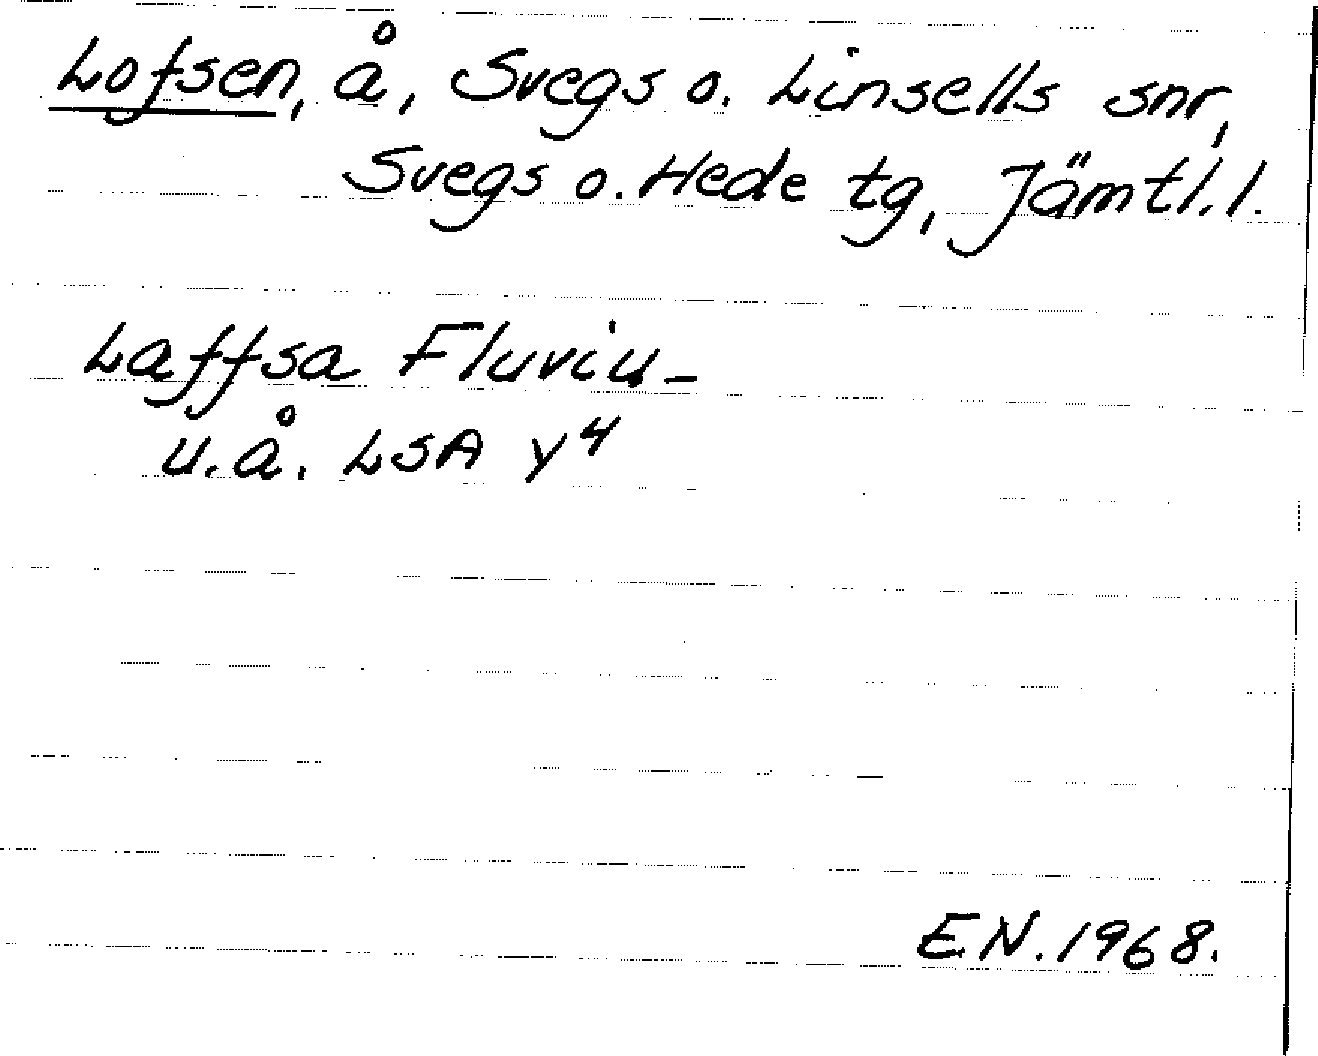 Lofsen, å, Svegs o. Linsells snr,
Svegs o. Hede tg, Jämtl. l.
Laffsa Fluviu-
u.å. LSA y4
EN. 1968.